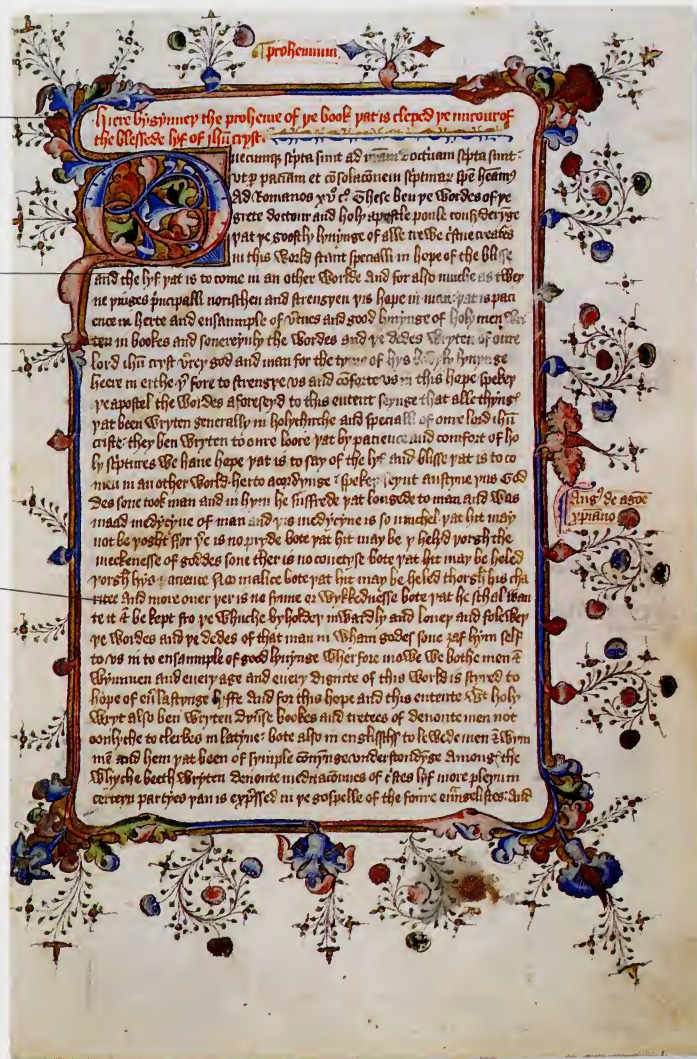 prohemium
Here bygynneþ the proheme of þe book þat is cleped þe mirour of
the blessede lyf of ihū cryst.
Quecumq; scpta sunt ad nram doctinam scpta sunt.
vt p̄ pacīam et cōsolacōnem scpturaȝ spē heamꝰ
Ad Romanos xvͦ cͦ. These ben þe wordes of þe
grete doctour and holy apostle poule consderyge
þat þe goostly lyuynge of alle trewe cstne creatēs
in this world stant specialli in hope of the blisse
and the lyf þat is to come in an other worlde And for also muche as twey
ne þinges pncipalli norischen and strengþen þis hope in man. þat is paci
ence in herte and ensaumple of vtues and good lyuynge of holy men wri
ten in bookes and souereynly the wordes and þe dedes wryten of oure
lord ihū cryst verey god and man for the tyme of hys bodyly lyuynge
heere in erthe þfore to strengþe vs and cōforte vs in this hope spekeþ
þe apostel the wordes aforeseyd to this entent seynge that alle thynges
þat been wryten generally in holychirche and specially of oure lord ihū
criste they ben wryten to oure loore þat by pacience and comfort of ho
ly scptures we haue hope þat is to say of the lyf and blisse þat is to co
men in an other world. herto acordynge spekeþ seynt austyne þus God
des sone took man and in hym he suffrede þat longede to man and was
maad medycyne of man and þis medycyne is so muchel þat hit may
not be þoght ffor þe is no pryde bote þat hit may be yheled þorgh the
mekenesse of goddes sone ther is no coueityse bote þat hit may be heled
þorgh hys pouerte No malice bote þat hit may be heled thorgh his cha
ritee and more ouer þer is no synne or wykkednesse bote þat he schal wan
te it & be kept fro þe whuche byholdeþ inwardly and loueþ and foleweþ
þe wordes and þe dedes of that man in wham godes sone ȝaf hym self
to vs in to ensaumple of good lyuynge Wherfore mowe we bothe men &
wymmen and euery age and euery dignite of this world is styred to
hope of eūlastynge lyffe And for this hope and this entente wt holy
wryt also ben wryten dyūse bookes and tretees of deuoute men not
oonlyche to clerkes in latyne. bote also in englissħs to lewede men & wym
men and hem þat been of symple conynge vnderstondyge Among the
whyche beeth wryten deuoute meditaciouns of cstes lyf more pleyn in
certeyn partyes þan is expssed in þe gospelle of the foure euāngelistes. And
Augꝰ de agōe
xpiano